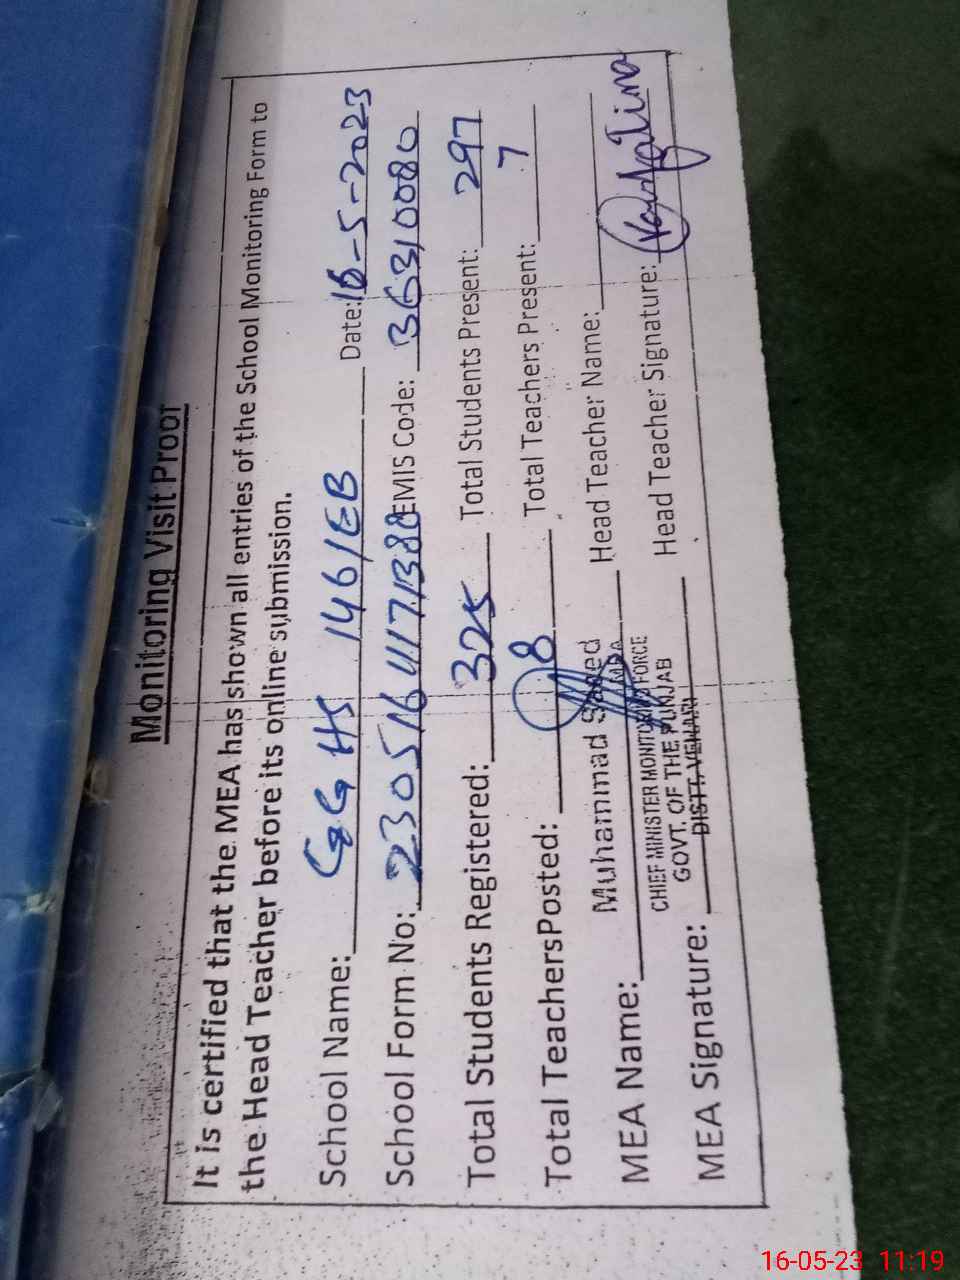 Monitoring Visit Proof
It is certified that the MEA has shown all entries of the School Monitoring Form to
the Head Teacher before its online submission.
School Name: GGHS 146/EB Date: 16-5-2023
School Form No: EMIS Code: 36310080
Total Students Registered: 325 Total Students Present: 297
Total TeachersPosted: 8 Total Teachers Present: 7
MEA Name: Muhammad Saeed Head Teacher Name:
MEA
CHIEF MINISTER MONITORING FORCE
GOVT. OF THE PUNJAB
DISTT. VEHARI
MEA Signature: Head Teacher Signature:
16-05-23 11:19